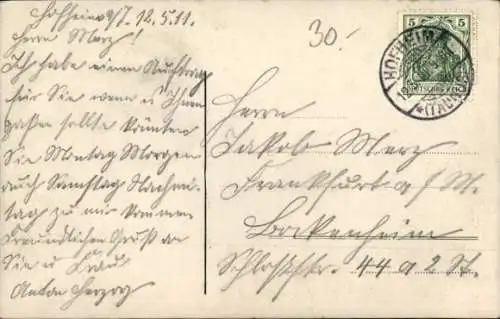 Hofheim a/T. 12.5.11.
Herrn Merz!
Ich habe einen Auftrag
für Sie wenn es Ihnen
passen sollte könnten
Sie Montag Morgen
auch Samstag Nachmi-
tag zu mir kommen
Freundlichen Gruß an
Sie u. Frau
Anton Herzog
30.-
5 5
DEUTSCHES REICH
HOFHEIM
(TAUNUS)
Herrn
Jakob Merz
Frankfurt a/M.
Bockenheim
Schloßstr. 44 a 2 St.